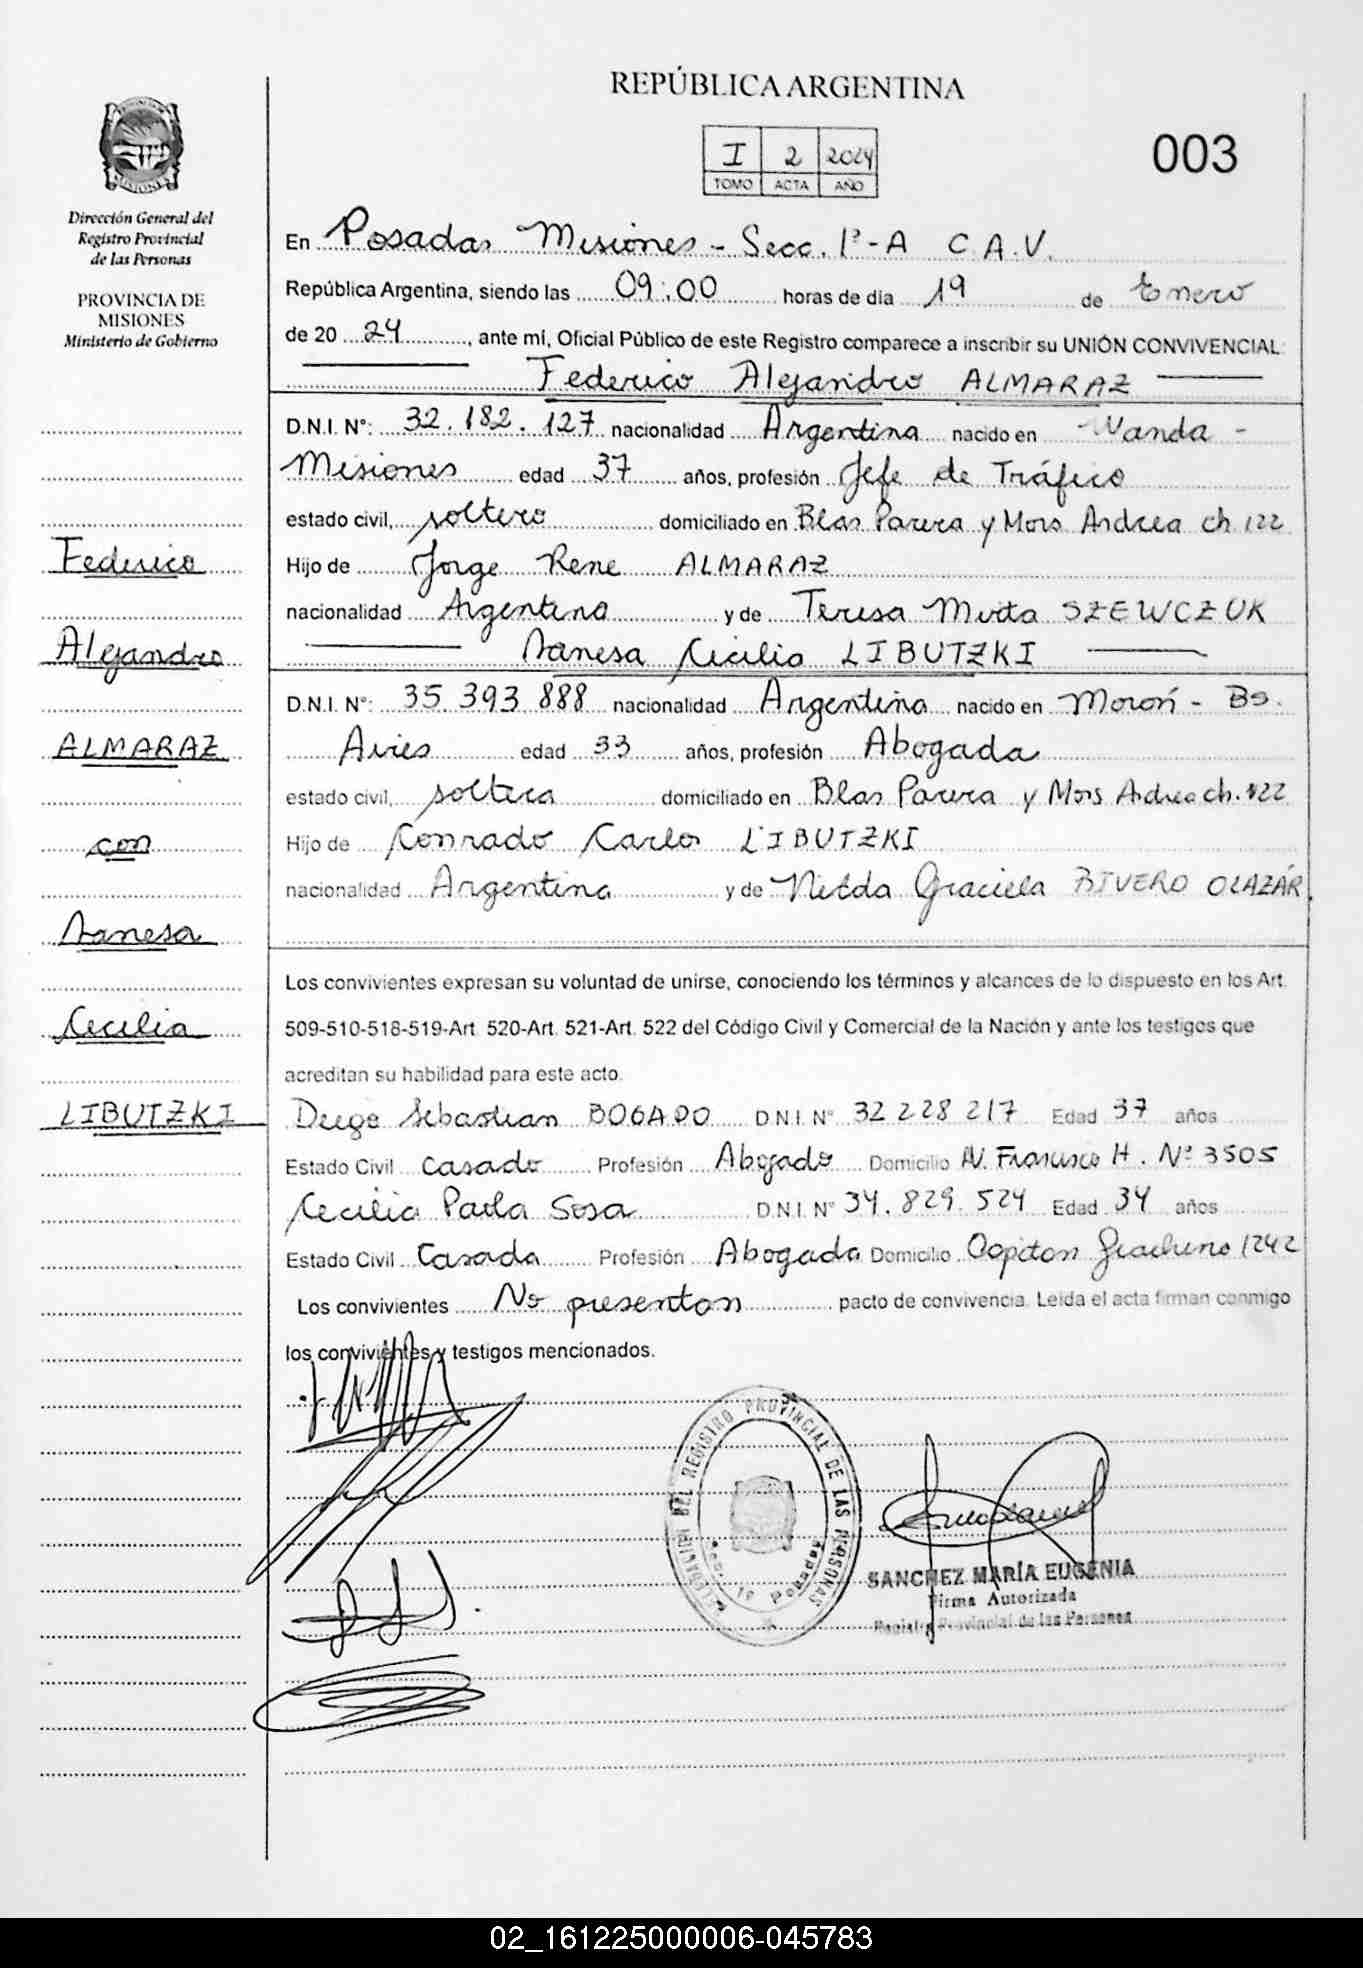 REPÚBLICA ARGENTINA
I 2 2024
TOMO ACTA AÑO
003
Dirección General del
Registro Provincial
de las Personas
PROVINCIA DE
MISIONES
Ministerio de Gobierno
En Posadas Misiones - Secc. 1ª - A C.A.V.
República Argentina, siendo las 09:00 horas de dia 19 de Enero
de 20 24, ante mí, Oficial Público de este Registro comparece a inscribir su UNIÓN CONVIVENCIAL
Federico Alejandro ALMARAZ
D.N.I. N°: 32.182.127 nacionalidad Argentina nacido en Wanda -
Misiones edad 37 años, profesión Jefe de Tráfico
estado civil, soltero domiciliado en Blas Parera y Mons Andrea ch 122
Hijo de Jorge Rene ALMARAZ
nacionalidad Argentina y de Teresa Mirta SZEWCZUK
Vanesa Cecilia LIBUTZKI
D.N.I. N°: 35.393.888 nacionalidad Argentina nacido en Morón - Bs.
Aires edad 33 años, profesión Abogada
estado civil, soltera domiciliado en Blas Parera y Mons Adrea ch. 122
Hijo de Conrado Carlos LIBUTZKI
nacionalidad Argentina y de Nilda Graciela RIVERO OLAZÁR
Los convivientes expresan su voluntad de unirse, conociendo los términos y alcances de lo dispuesto en los Art.
509-510-518-519-Art. 520-Art. 521-Art. 522 del Código Civil y Comercial de la Nación y ante los testigos que
acreditan su habilidad para este acto.
Diego Sebastian BOGADO D.N.I. N° 32 228 217 Edad 37 años
Estado Civil Casado Profesión Abogado Domicilio AV. Francisco H. N° 3505
Cecilia Paola Sosa D.N.I. N° 34.829.524 Edad 34 años
Estado Civil Casada Profesión Abogada Domicilio Capitan 1242
Los convivientes No presentan pacto de convivencia. Leida el acta firman conmigo
los convivientes y testigos mencionados.
Federico
Alejandro
ALMARAZ
con
Vanesa
Cecilia
LIBUTZKI
DELEGACIÓN DEL REGISTRO PROVINCIAL DE LAS PERSONAS
Sec. 1a Posadas
SANCHEZ MARÍA EUGENIA
Firma Autorizada
Registro Provincial de las Personas
02_161225000006-045783